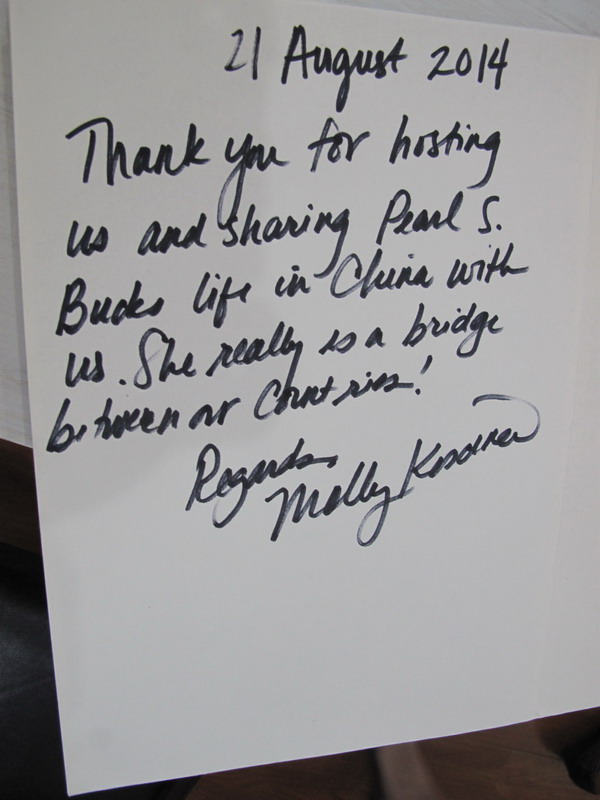 21 August 2014
Thank you for hosting
us and sharing Pearl S.
Bucks life in China with
us. She really is a bridge
between our Countries!
Regards,
Molly